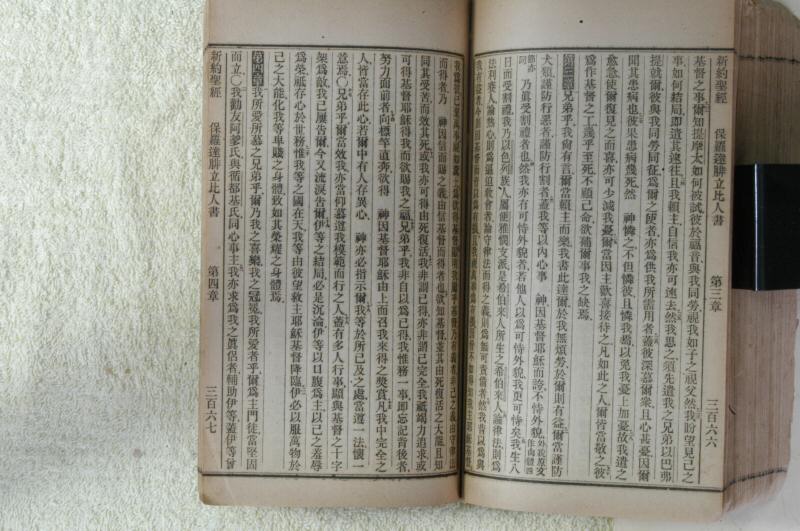 新約聖經 保羅達腓立比人書 第三章 三百六六
基督之事、爾知提摩太如何被試、彼於福音與我同勞、視我如子之視父、然我盼望見己之
事如何結局、即遣其速往、且我賴主、自信我亦可速去、然我思之、須先遣我之兄弟以巴弗
提就爾、彼與我同勞同征、爲爾之使者、亦爲供我所需用者、蓋彼深慕爾衆、且心甚憂、因爾
聞其患病也、彼果患病幾死、然 神憐之、不但憐彼、且憐我焉、以免我憂上加憂、故我遣之
愈急、使爾復見之而喜、亦可少減我憂、爾當因主歡喜接待之、凡如此之人、爾皆當敬之、彼
爲作基督之工、幾乎至死、不顧己命、欲補爾事我之缺焉、
第三章 兄弟乎、我尙有言、爾當賴主而樂、我書此達爾、於我無煩勞、於爾則有益、爾當謹防
犬類、謹防行惡者、謹防行割者、蓋我等以內心事 神、因基督耶穌而誇、不恃外貌、外貌原文作肉體四節亦同
乃眞受割禮者也、然我亦有可恃外貌者、若他人以爲可恃外貌、我更可恃矣、我生八
日而受割禮、我乃以色列族人、屬便雅憫支派、是希伯來人所生之希伯來人、論律法、則爲
法利賽人、論熱心、則爲逼迫敎會者、論守律法而得之義、則爲無可責備者、然我昔以爲與
而得者、乃 神因信而賜之義、由信基督而得者也、欲知基督、並其由死復活之大能、且知
同其受苦、而效其死、或我亦可得由死復活、我非謂已得、亦非謂已完全、我祗竭力追求、或
可得基督耶穌得我而欲賜我之福、兄弟乎、我非自以爲已得、我惟務一事、即忘記背後者、
努力面前者、向標竿直奔、欲得 神因基督耶穌由上而召我來得之獎賞、凡我中完全之
人、皆當存此心、若爾中有人存異心、 神亦必指示爾、我等於所已及之處、當遵一法、懷一
意焉、○兄弟乎、爾當效我、亦當仰慕遵我模範而行之人、蓋有多人行事、顯與基督之十字
架爲敵、我已屢告爾、今又流淚告爾、伊等之結局、必是沉淪、伊等以口腹爲主、以己之羞辱
爲榮、祗存心於世務、惟我等之國在天、我等由彼望救主耶穌基督降臨、伊必以服萬物於
己之大能、化我等卑賤之身體、致如其榮耀之身體焉、
第四章 我所愛所慕之兄弟乎、爾乃我之喜樂、我之冠冕、我所愛者乎、爾爲主門徒、當堅固
而立、○我勸友阿爹氏與循都基氏、同心事主、我亦求爲我之眞侶者、輔助伊等、蓋伊等曾
新約聖經 保羅達腓立比人書 第四章 三百六七